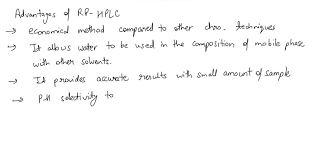 Advantages of RP-HPLC
→ economical method compared to other chro. techniques
→ It allows water to be used in the composition of mobile phase
with other solvents.
→ It provides accurate results with small amount of sample
→ PH selectivity to